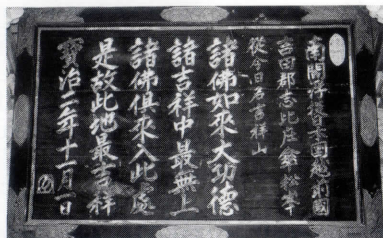 南閻浮提日本国越前国
吉田郡志比庄傘松峯
従今日名吉祥山
諸佛如來大功徳
諸吉祥中最無上
諸佛倶來入此處
是故此地最吉祥
寳治二年十一月一日